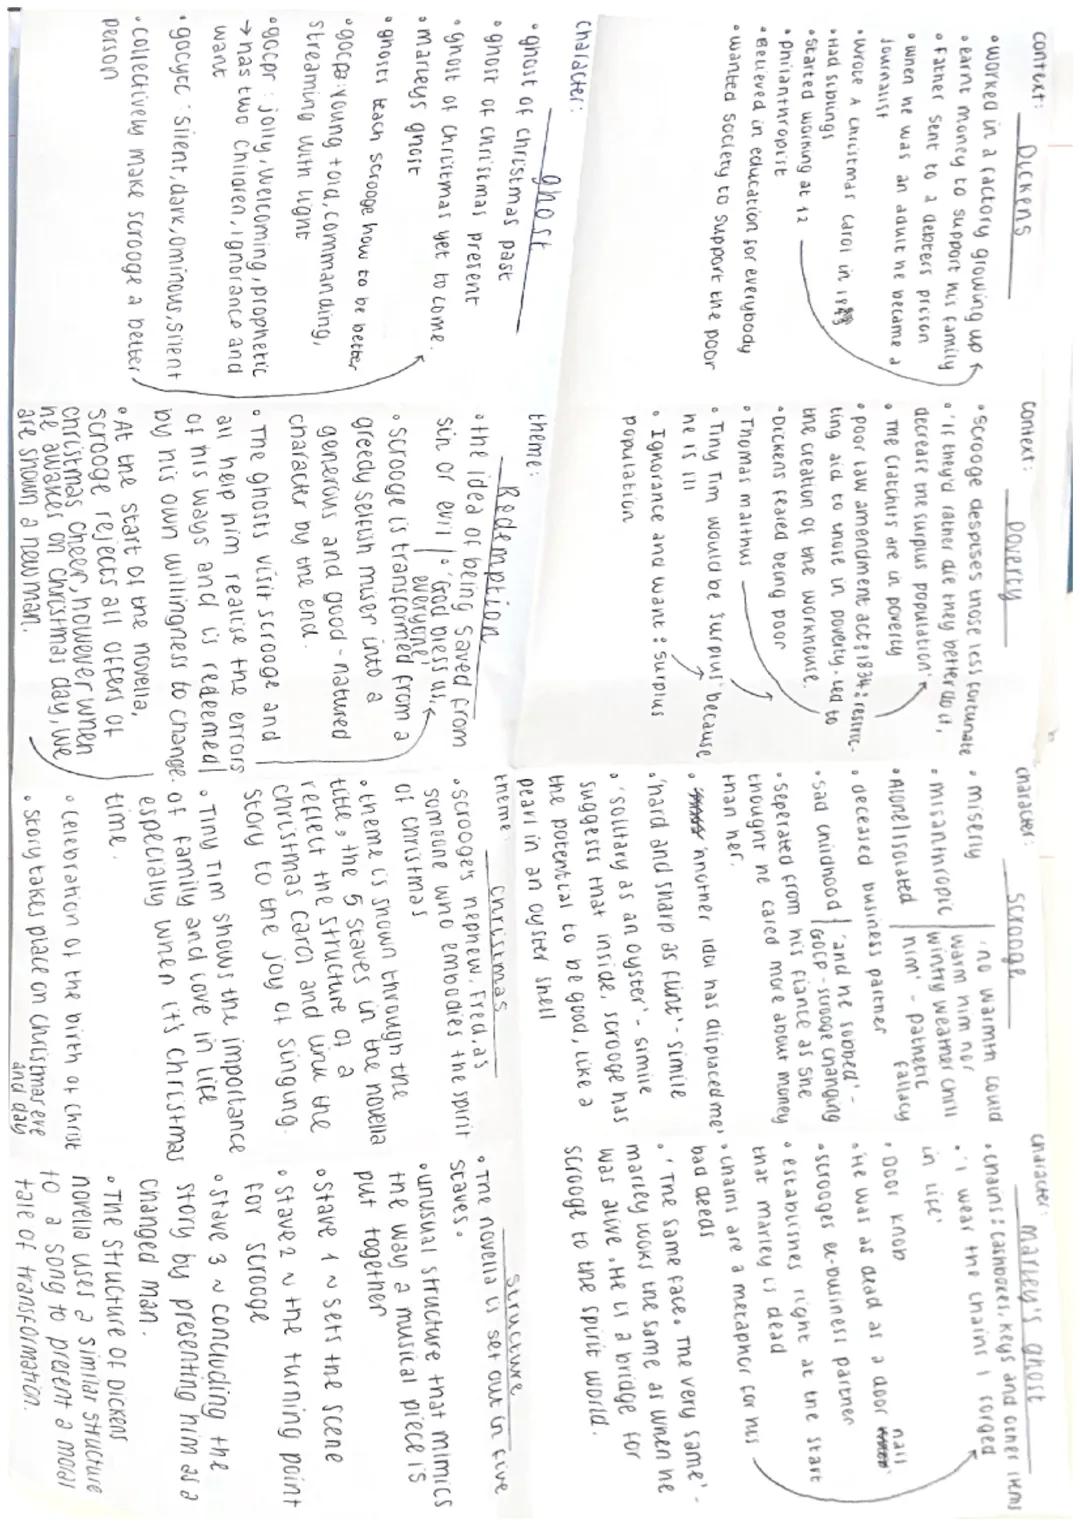 context: Dickens
• worked in a factory growing up
• earnt money to support his family
• Father sent to a debters prison
• when he was an adult he became a
journalist
• wrote A Christmas Carol in 1843
• Had siblings
• started working at 12
• philanthropist
• Believed in education for everybody
• wanted society to support the poor
context: Poverty
• Scrooge despises those less fortunate
• 'if they'd rather die they better do it,
decrease the surpus population'
• The Cratchits are in poverty
• poor law amendment act: 1834: restric-
ting aid to those in poverty - led to
the creation of the workhouse.
• Dickens feared being poor
• Thomas malthus
• Tiny Tim would be 'surplus' because
he is ill
• Ignorance and want: surplus
population
character: Scrooge
• misery
• misanthropic
• Alone/isolated
'no warmth could
warm him nor
wintry weather chill
him' - pathetic
fallacy
• deceased business partner
• sad childhood
'and he sobbed' -
GOCP - scrooge changing
• seperated from his fiance as she
thought he cared more about money
than her.
• 'another idol has displaced me'
• 'hard and sharp as flint' - simile
• 'solitary as an oyster' - simile
suggests that inside, scrooge has
the potential to be good, like a
pearl in an oyster shell
character: Marley's ghost
• chains: cashboxes, keys and other items
• 'I wear the chains I forged
in life'
• Door knob
• He was as dead as a door nail
• scrooges ex-business partner
• establishes right at the start
that marley is dead
• chains are a metaphor for his
bad deeds
• 'The same face. The very same' -
marley looks the same as when he
was alive. He is a bridge for
scrooge to the spirit world.
character: ghost
• ghost of christmas past
• ghost of christmas present
• ghost of christmas yet to come.
• marleys ghost
• ghosts teach scrooge how to be better
• gocpa: young + old, commanding,
streaming with light
• gocpr: jolly, welcoming, prophetic
→ has two children, ignorance and
want
• gocytc: silent, dark, ominous, silent
• collectively make scrooge a better
person
theme: Redemption
• the idea of being saved from
sin or evil
• 'God bless us,
everyone'
• scrooge is transformed from a
greedy selfish miser into a
generous and good-natured
character by the end.
• The ghosts visit scrooge and
all help him realise the errors
of his ways and is redeemed
by his own willingness to change.
• At the start of the novella,
scrooge rejects all offers of
christmas cheer, however when
he awakes on christmas day, we
are shown a new man.
theme: christmas
• scrooge's nephew, Fred, as
someone who embodies the spirit
of christmas
• theme is shown through the
title, the 5 staves in the novella
reflect the structure of a
christmas carol and link the
story to the joy of singing.
• Tiny Tim shows the importance
of family and love in life
especially when it's christmas
time.
• celebration of the birth of christ
• story takes place on christmas eve
and day
structure
• The novella is set out in five
staves.
• unusual structure that mimics
the way a musical piece is
put together
• Stave 1 ~ sets the scene
• stave 2 ~ the turning point
for scrooge
• stave 3 ~ concluding the
story by presenting him as a
changed man.
• The structure of Dickens
novella uses a similar structure
to a song to present a moral
tale of transformation.